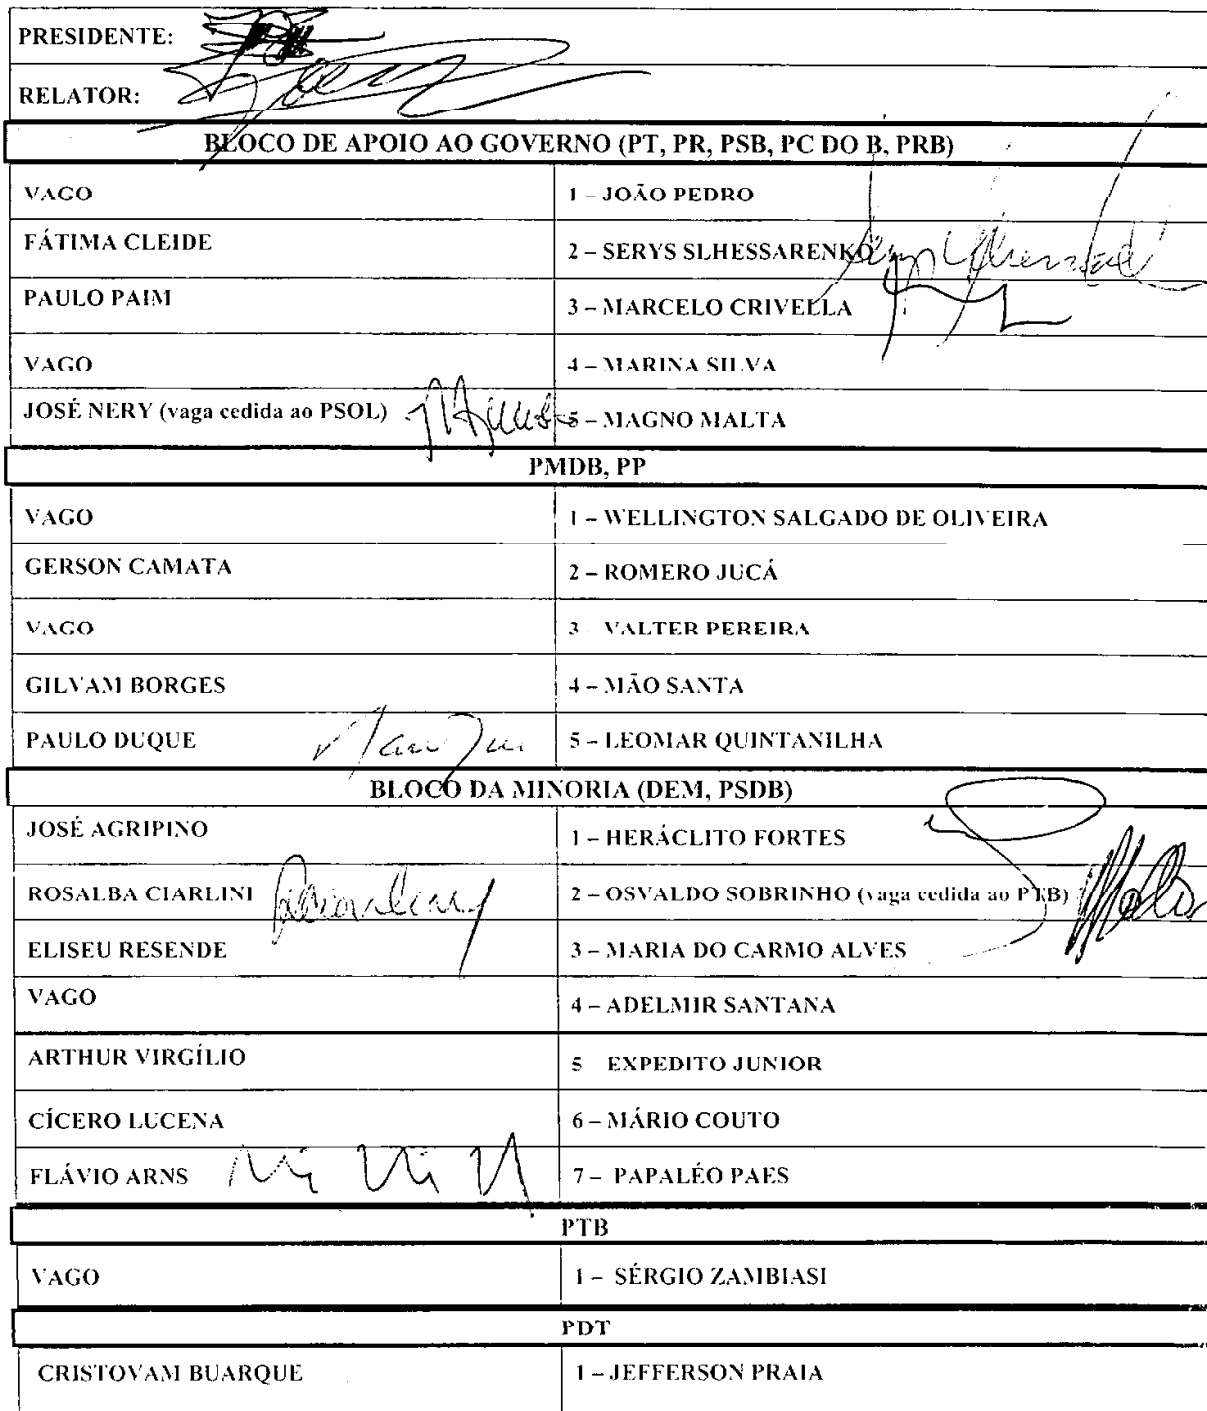 PRESIDENTE:
RELATOR:
BLOCO DE APOIO AO GOVERNO (PT, PR, PSB, PC DO B, PRB)
VAGO 1 – JOÃO PEDRO
FÁTIMA CLEIDE 2 – SERYS SLHESSARENKO
PAULO PAIM 3 – MARCELO CRIVELLA
VAGO 4 – MARINA SILVA
JOSÉ NERY (vaga cedida ao PSOL) 5 – MAGNO MALTA
PMDB, PP
VAGO 1 – WELLINGTON SALGADO DE OLIVEIRA
GERSON CAMATA 2 – ROMERO JUCÁ
VAGO 3 VALTER PEREIRA
GILVAM BORGES 4 – MÃO SANTA
PAULO DUQUE 5 – LEOMAR QUINTANILHA
BLOCO DA MINORIA (DEM, PSDB)
JOSÉ AGRIPINO 1 – HERÁCLITO FORTES
ROSALBA CIARLINI 2 – OSVALDO SOBRINHO (vaga cedida ao PTB)
ELISEU RESENDE 3 – MARIA DO CARMO ALVES
VAGO 4 – ADELMIR SANTANA
ARTHUR VIRGÍLIO 5 EXPEDITO JUNIOR
CÍCERO LUCENA 6 – MÁRIO COUTO
FLÁVIO ARNS 7 – PAPALÉO PAES
PTB
VAGO 1 – SÉRGIO ZAMBIASI
PDT
CRISTOVAM BUARQUE 1 – JEFFERSON PRAIA